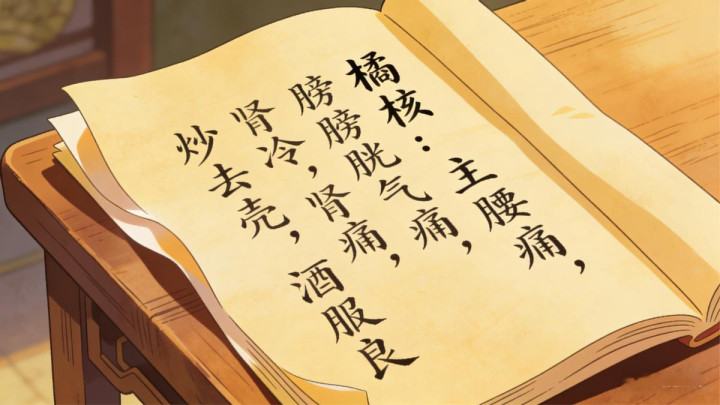 橘核：主腰痛，
膀膀胱气痛，
肾冷，肾痛，
炒去壳，酒服良